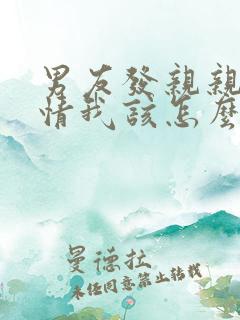 男友發親親
情我該怎麼
曼德拉
未经同意禁止转载